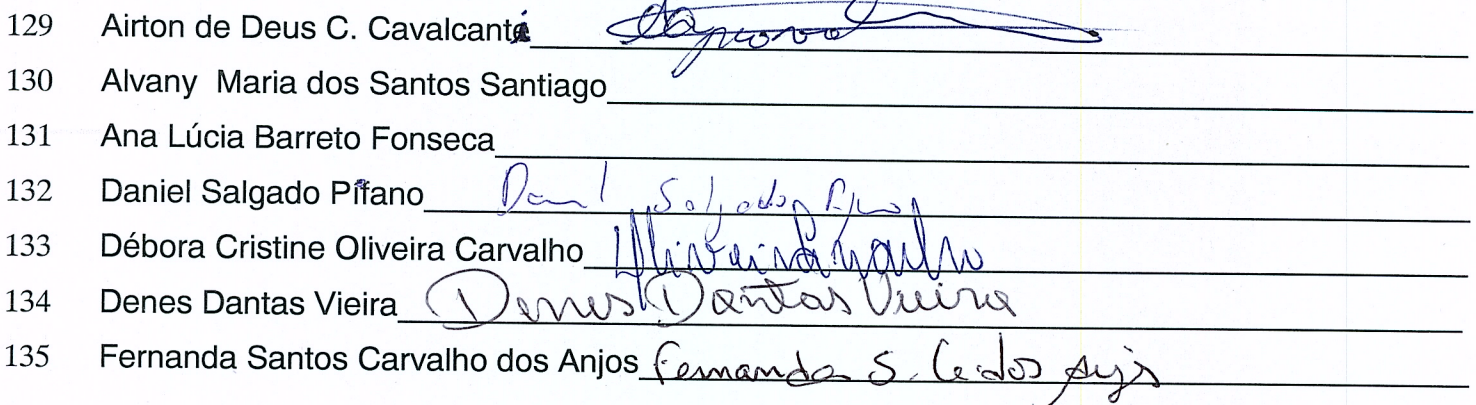 129 Airton de Deus C. Cavalcanti
130 Alvany Maria dos Santos Santiago
131 Ana Lúcia Barreto Fonseca
132 Daniel Salgado Pifano Daniel Salgado Pifano
133 Débora Cristine Oliveira Carvalho
134 Denes Dantas Vieira Denes Dantas Vieira
135 Fernanda Santos Carvalho dos Anjos Fernanda S. C. dos Anjos